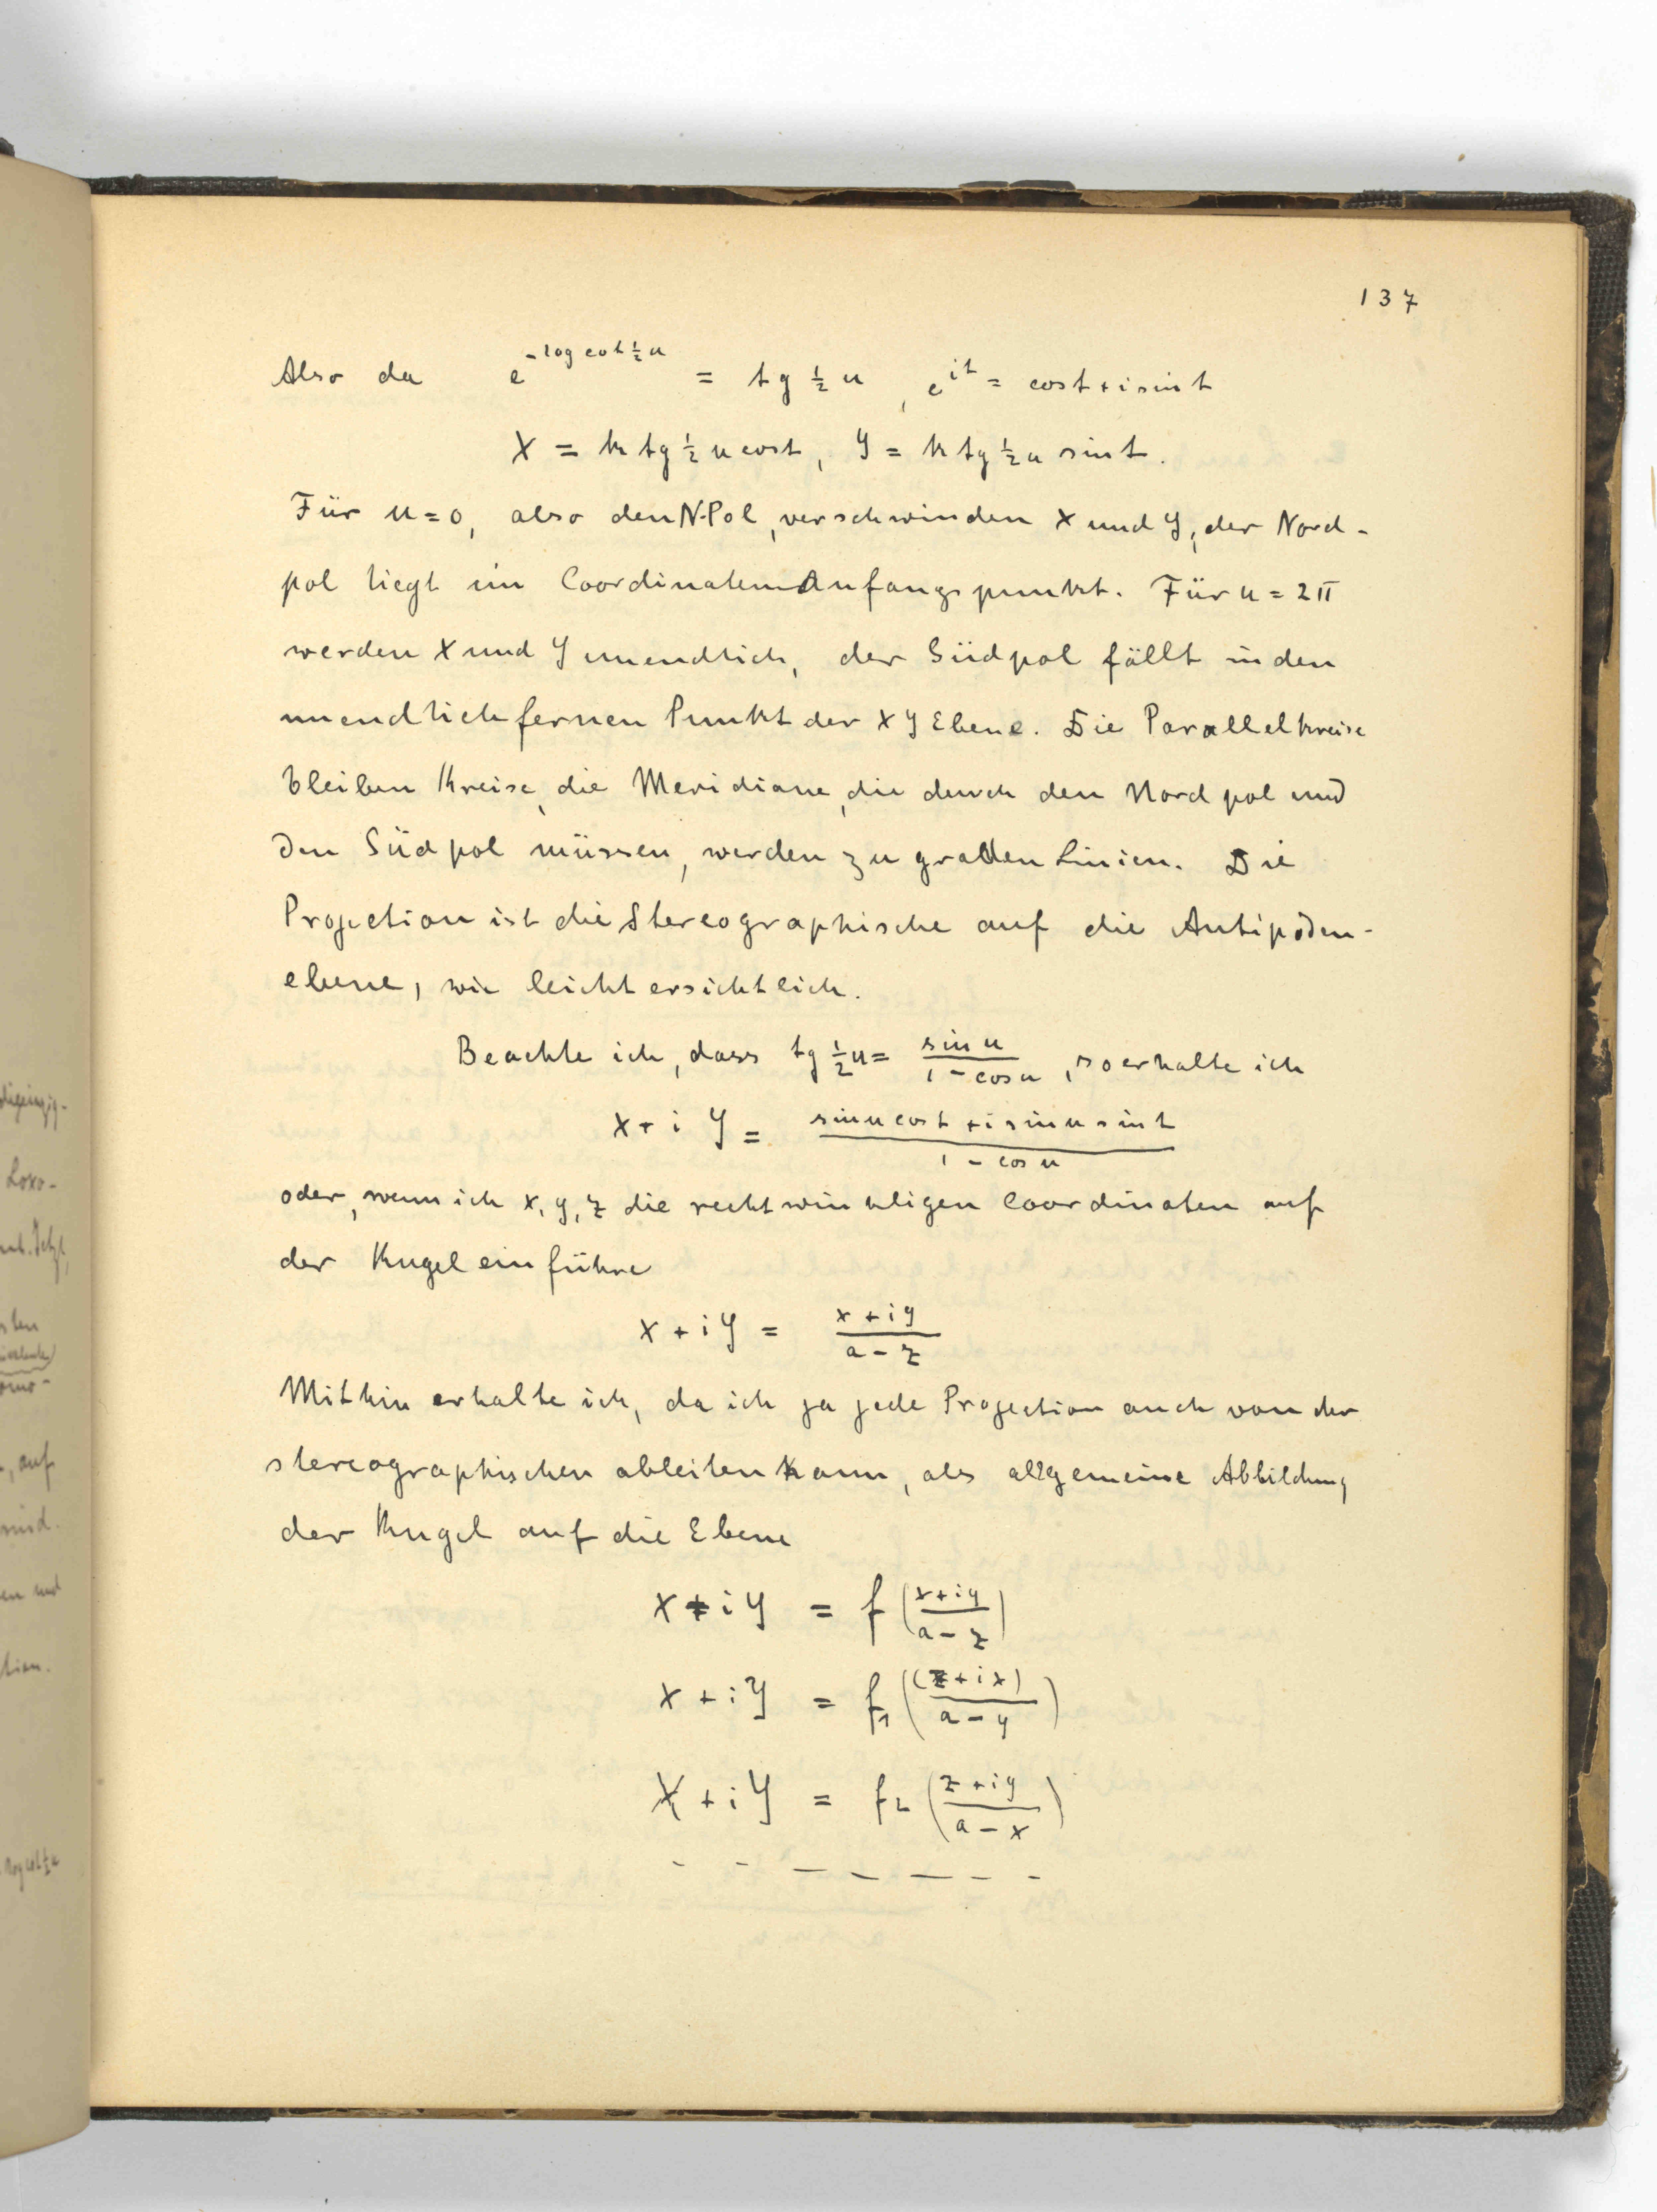 137
Also da e^{-log cot ½ u} = tg ½ u, e^{it} = cos t + i sin t
X = k tg ½ u cos t, Y = k tg ½ u sin t.
Für u = 0, also den N-Pol, verschwinden X und Y, der Nord-
pol liegt im Coordinatenanfangspunkt. Für u = 2π
werden X und Y unendlich, der Südpol fällt in den
unendlich fernen Punkt der XY Ebene. Die Parallelkreise
bleiben Kreise, die Meridiane, die durch den Nordpol und
den Südpol müssen, werden zu graden Linien. Die
Projection ist die Stereographische auf die Antipoden-
ebene, wie leicht ersichtlich.
Beachte ich, dass tg ½ u = sin u / (1 - cos u), so erhalte ich
X + i Y = (sin u cos t + i sin u sin t) / (1 - cos u)
oder, wenn ich x, y, z die rechtwinkligen Coordinaten auf
der Kugel einführe
X + i Y = (x + i y) / (a - z)
Mithin erhalte ich, da ich ja jede Projection auch von der
stereographischen ableiten kann, als allgemeine Abbildung
der Kugel auf die Ebene
X + i Y = f ((x + i y) / (a - z))
X + i Y = f₁ ((z + i x) / (a - y))
X + i Y = f₂ ((z + i y) / (a - x))
Loxo-
, auf
en und